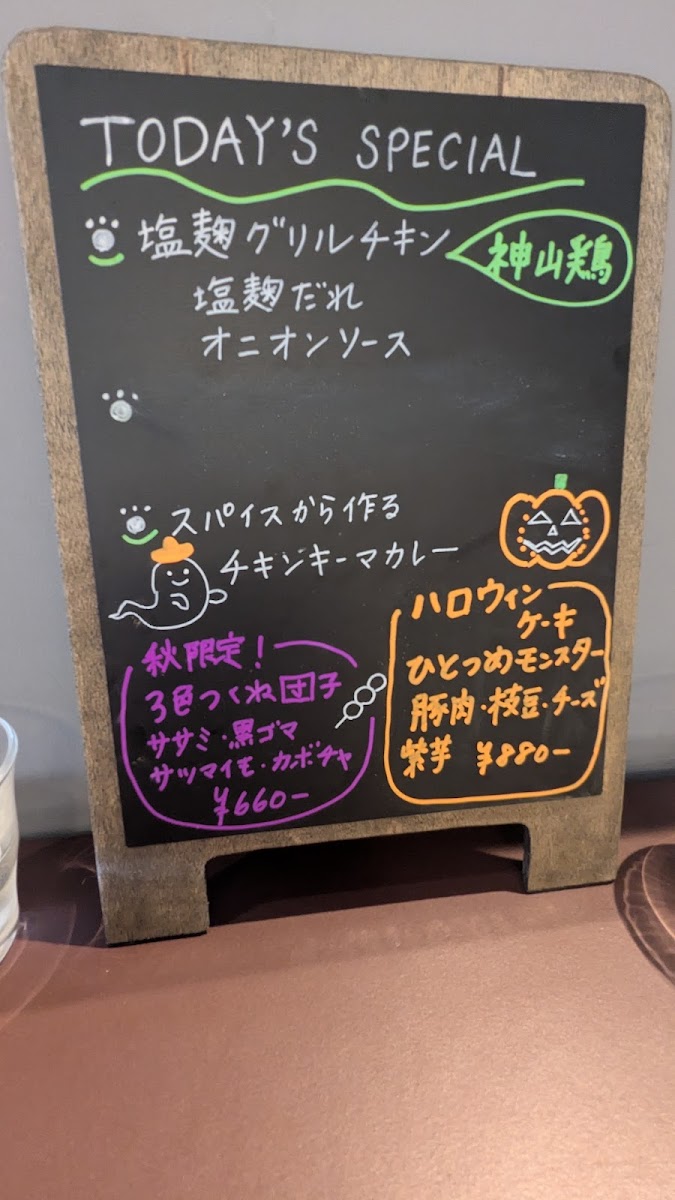 TODAY'S SPECIAL
塩麹グリルチキン
神山鶏
塩麹だれ
オニオンソース
スパイスから作る
チキンキーマカレー
秋限定！
3色つくね団子
ササミ・黒ゴマ
サツマイモ・カボチャ
¥660-
ハロウィン
ケーキ
ひとつめモンスター
豚肉・枝豆・チーズ
紫芋 ¥880-